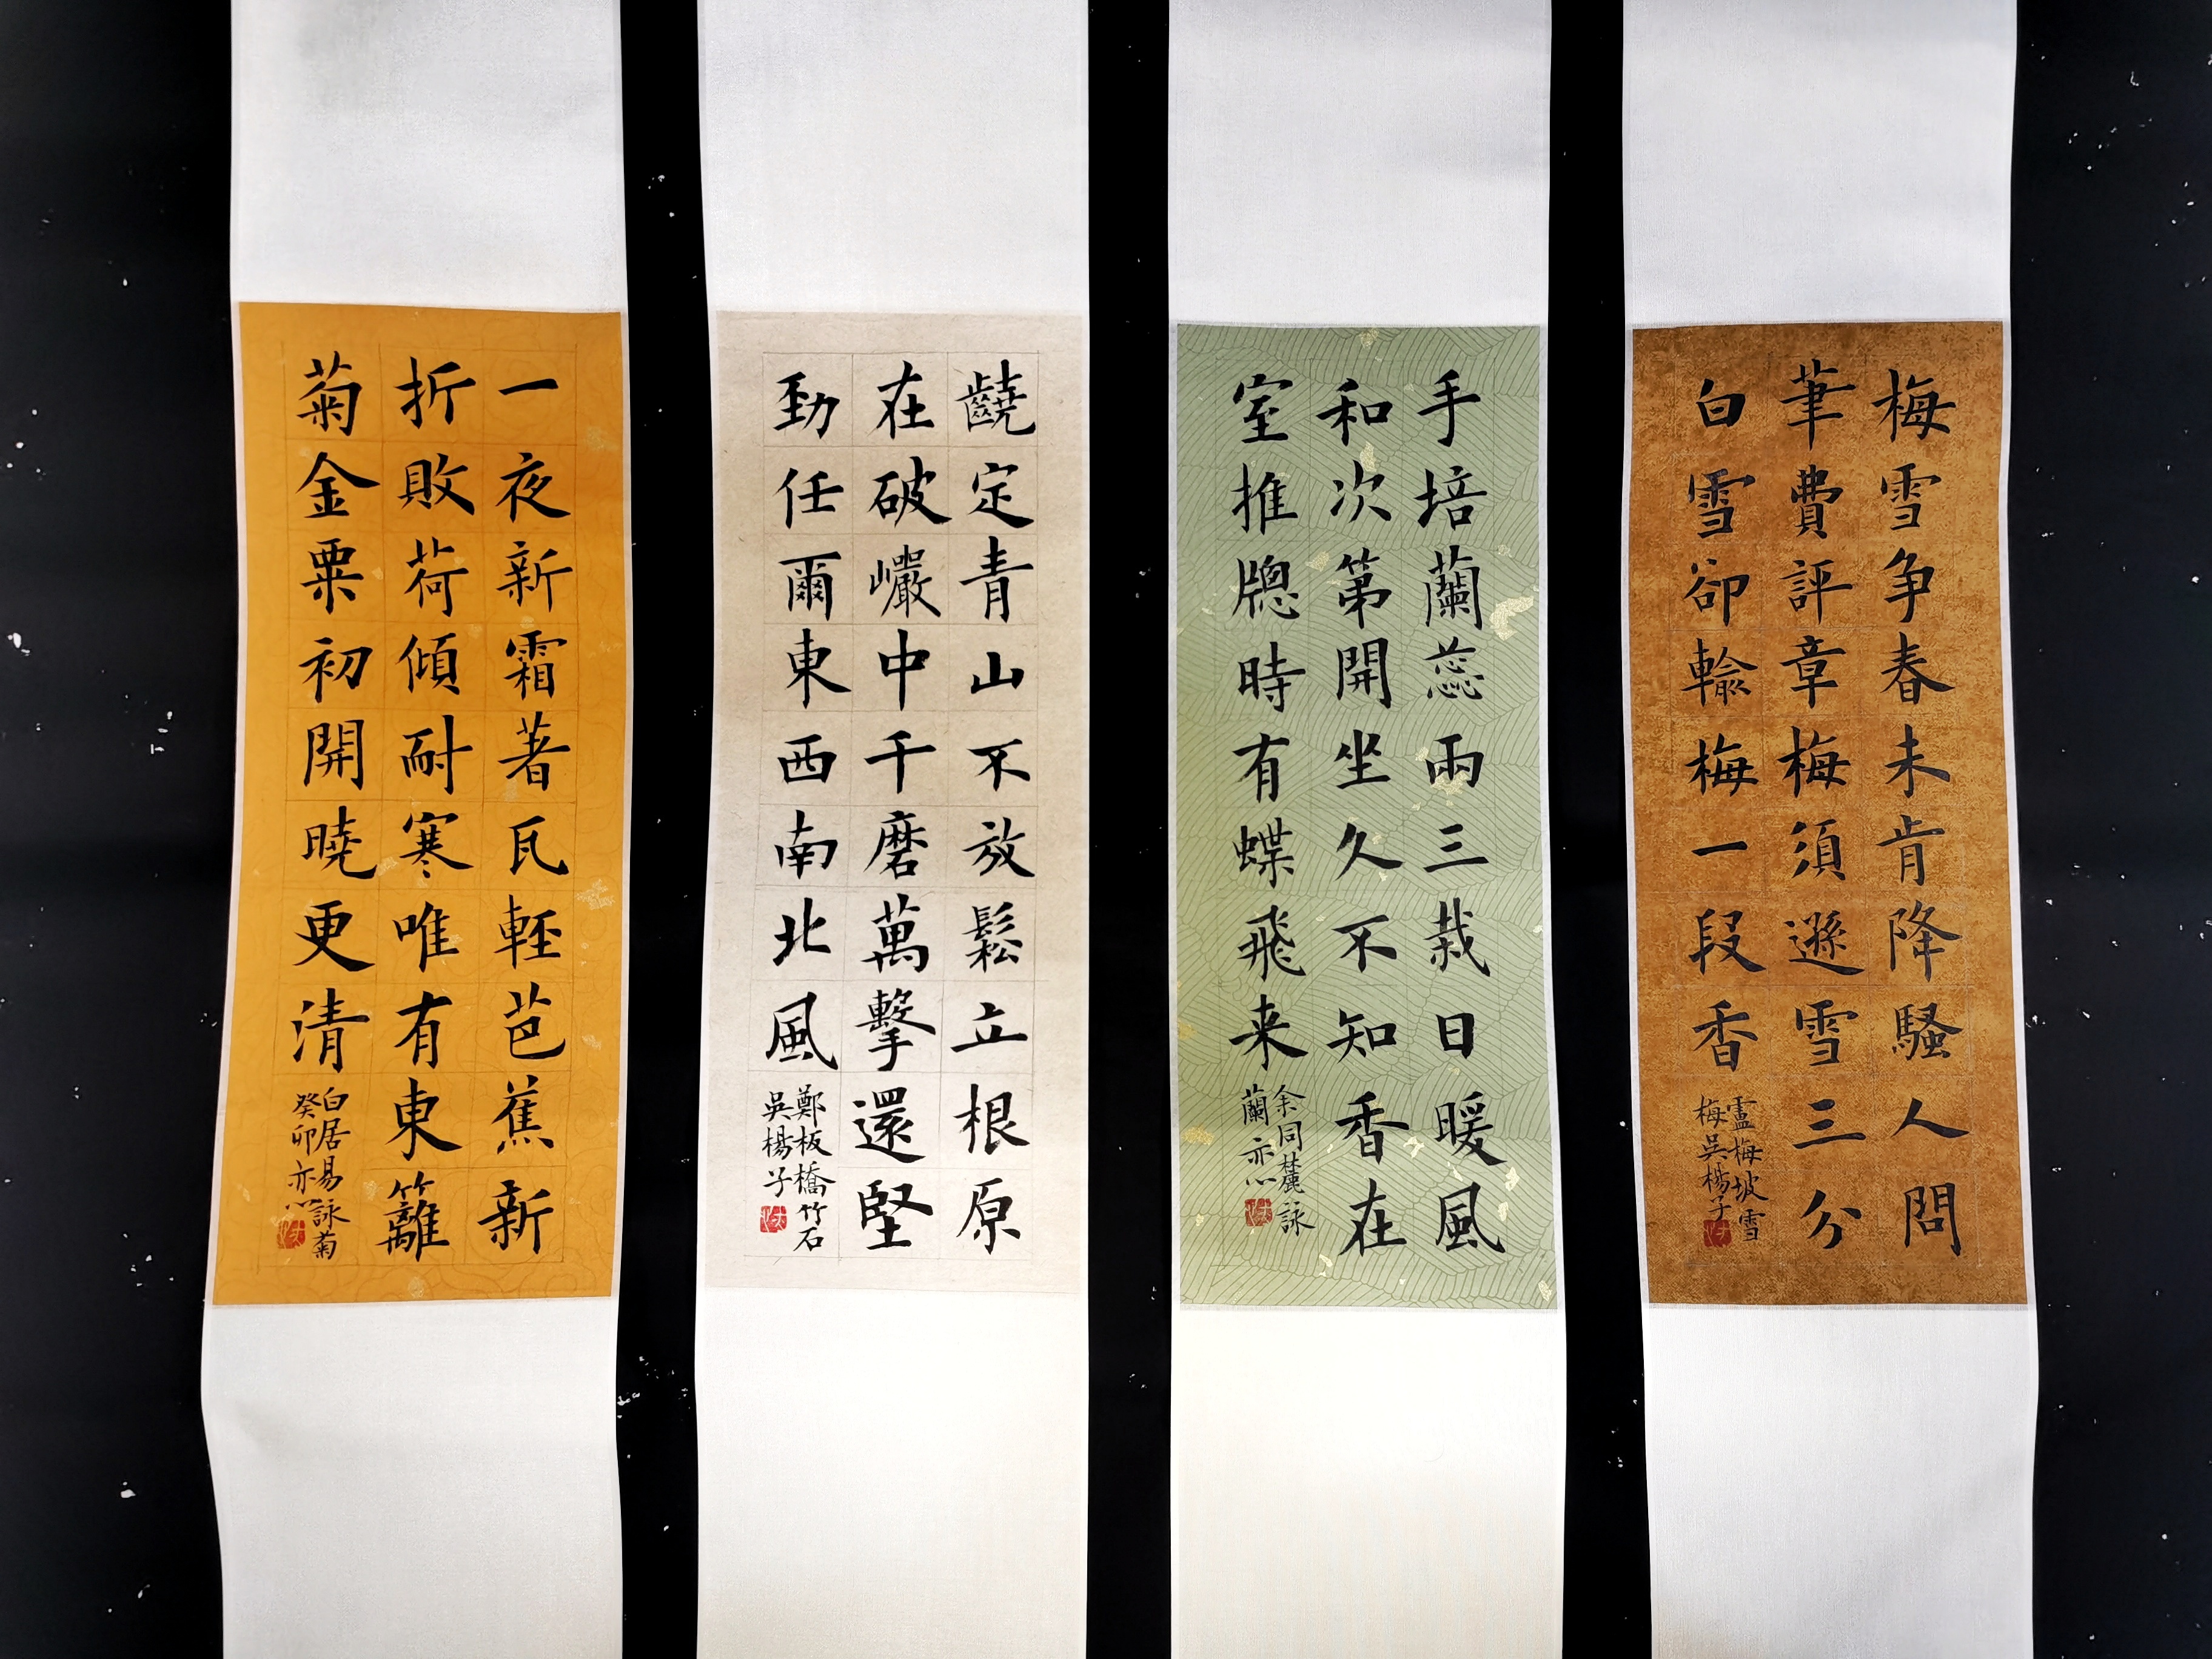 梅雪争春未肯降騷人問
筆費評章梅須遜雪三分
白雪卻輸梅一段香
盧梅坡雪
梅吳楊子
手培蘭蕊兩三栽日暖風
和次第開坐久不知香在
室推牕時有蝶飛来
余同麓詠
蘭亦心
䶧定青山不放鬆立根原
在破巖中千磨萬擊還堅
勁任爾東西南北風
鄭板橋竹石
吳楊子
一夜新霜著瓦輕芭蕉新
折敗荷傾耐寒唯有東籬
菊金粟初開曉更清
白居易詠菊
癸卯亦心